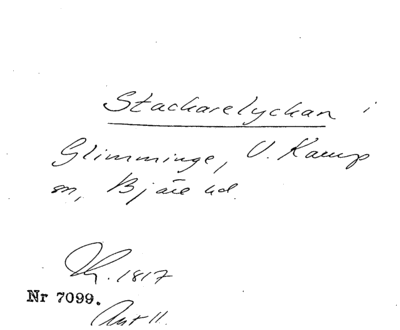 Stackarelyckan i
Glimminge, V. Karup
sn, Bjäre hd.
1817
Nr 7099.
Akt 11.